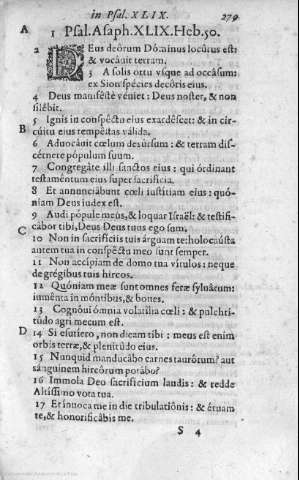 in Psal. XLIX. 279
A 1 Psal. Asaph. XLIX. Heb. 50.
2 DEus deôrum Dóminus locûtus est:
& vocâuit terram.
3 A solis ortu vsque ad occâsum:
ex Sion spécies decôris eius.
4 Deus manifèstè véniet: Deus noster, & non
silêbit.
5 Ignis in conspéctu eius exardéscet: & in cir-
B cúitu eius tempêstas válida.
6 Aduocâuit cœlum desúrsum: & terram dis-
cérnere pópulum suum.
7 Congregâte illi sanctos eius: qui órdinant
testaméntum eius super sacrificia.
8 Et annunciâbunt cœli iustítiam eius: quó-
niam Deus iudex est.
9 Audi pópule meùs, & loquar Israël: & testifi-
C câbor tibi, Deus Deus tuus ego sum.
10 Non in sacrificiis tuis árguam te: holocáusta
autem tua in conspéctu meo sunt semper.
11 Non accipiam de domo tua vítulos: neque
de grégibus tuis hircos.
12 Quóniam meæ sunt omnes feræ syluârum:
iuménta in móntibus, & boues.
13 Cognôui ómnia volatília cœli: & pulchri-
túdo agri mecum est.
D 14 Si esutíero, non dicam tibi: meus est enim
orbis terræ, & plenitûdo eius.
15 Nunquid manducâbo carnes taurôrum? aut
sánguinem hircôrum potâbo?
16 Immola Deo sacrifícium laudis: & redde
Altíssimo vota tua.
17 Et ínuoca me in die tribulatiônis: & éruam
te, & honorificâbis me.
S 4